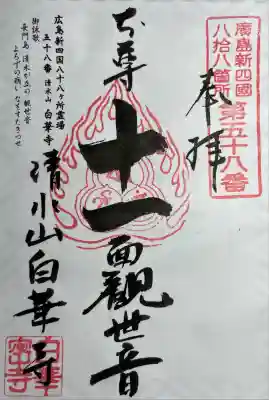 廣島新四國
八拾八箇所
第五十八番
奉拝
本尊十一面觀世音
広島新四国八十八ヶ所霊場
五十八番 清水山 白華寺
御詠歌
清水山白華寺
白華
密寺